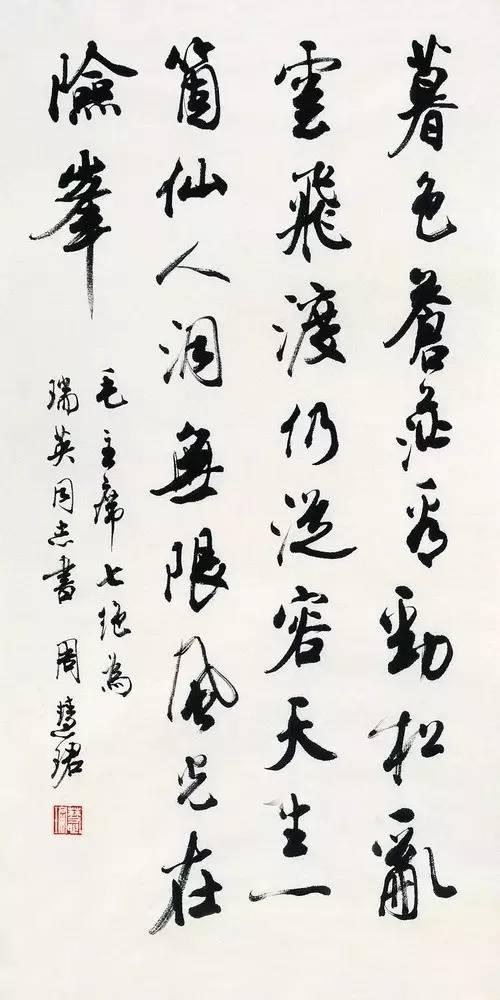 暮色蒼茫看勁松亂
雲飛渡仍從容天生一
箇仙人洞無限風光在
險峯
毛主席七絕為
瑞英同志書 周慧珺